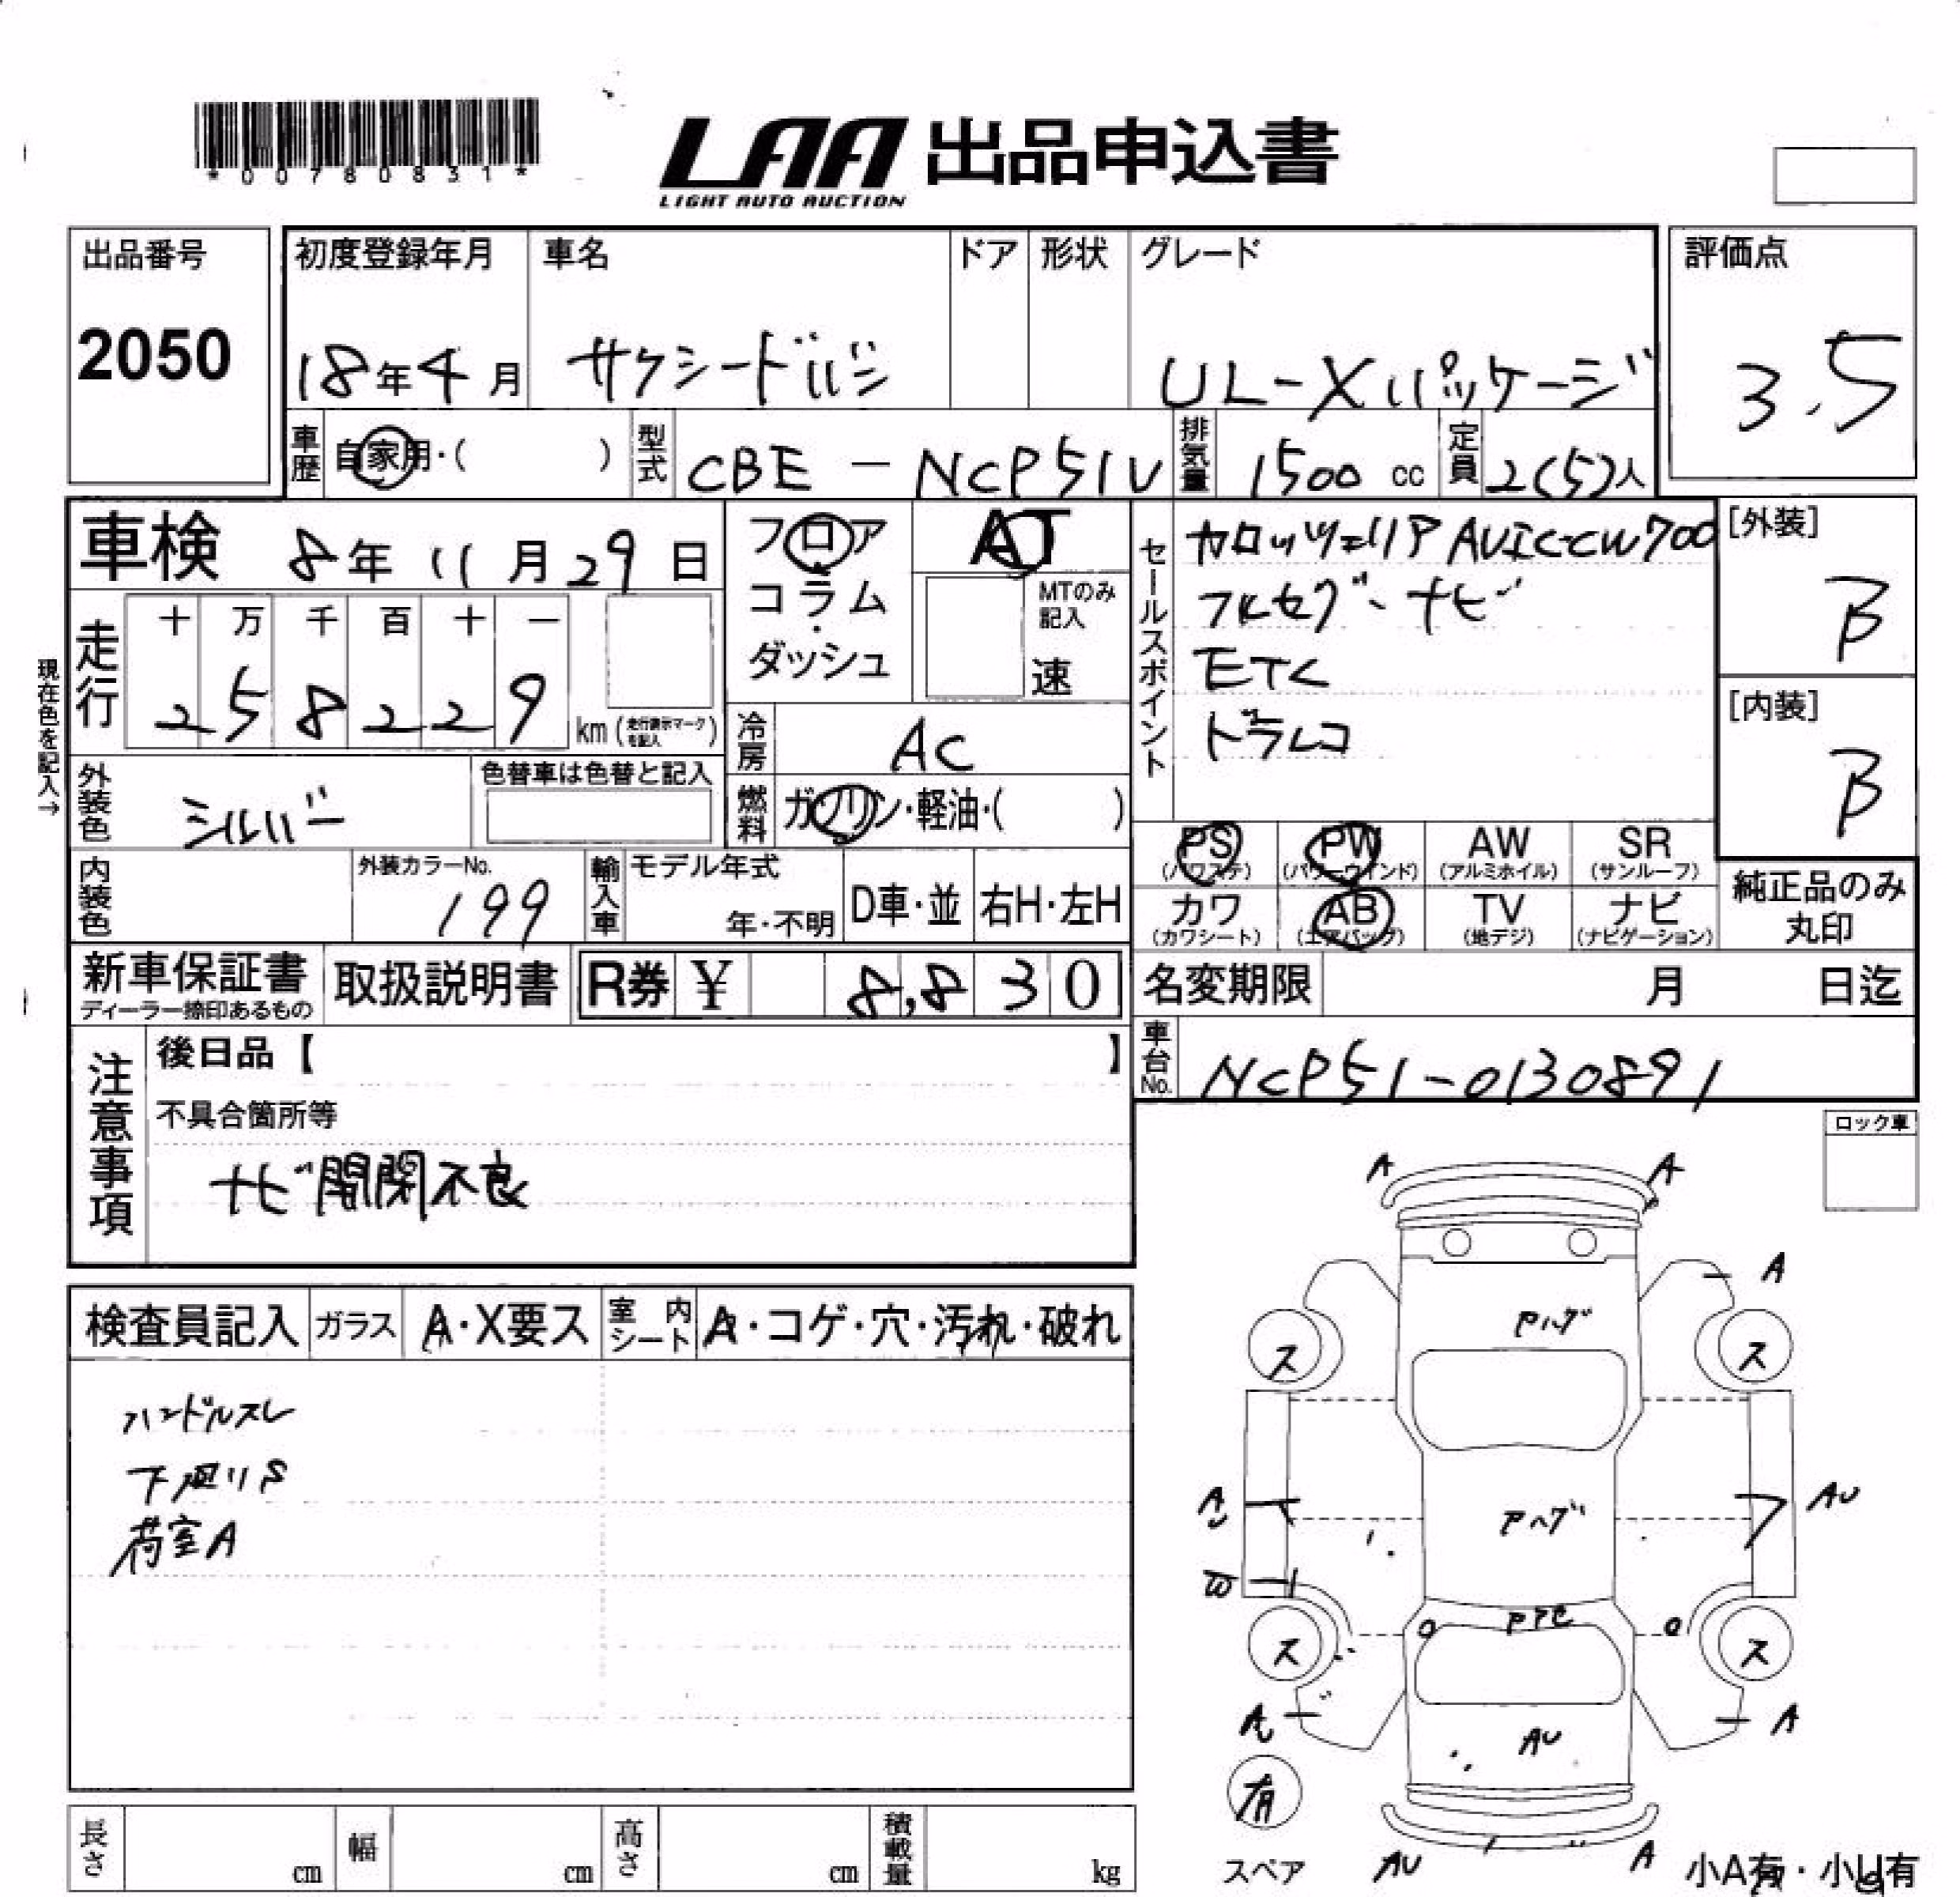 *00780831*
LAA 出品申込書
LIGHT AUTO AUCTION
出品番号
2050
初度登録年月
18年4月
車名
サクシードバン
ドア
形状
グレード
UL-Xパッケージ
評価点
3.5
車歴 自家用・( )
型式 CBE-NCP51V
排気量 1500 cc
定員 2(5)人
車検 8年11月29日
フロア
コラム
・
ダッシュ
AT
MTのみ記入
速
セールスポイント
カロッツェリア AVIC-CW700
フルセグ・ナビ
ETC
ドラレコ
[外装]
B
[内装]
B
現在色を記入→
走行
十 万 千 百 十 一
2 5 8 2 2 9 km (走行表示マークを記入)
冷房 AC
外装色 シルバー
色替車は色替と記入
燃料 ガソリン・軽油・( )
PS (パワステ)
PW (パワーウインド)
AW (アルミホイル)
SR (サンルーフ)
カワ (カワシート)
AB (エアバッグ)
TV (地デジ)
ナビ (ナビゲーション)
純正品のみ丸印
内装色
外装カラーNo. 199
輸入車
モデル年式
年・不明
D車・並
右H・左H
新車保証書
ディーラー捺印あるもの
取扱説明書
R券 ¥ 8,830
名変期限 月 日迄
車台No. NCP51-0130891
注意事項
後日品【 】
不具合箇所等
ナビ開閉不良
ロック車
検査員記入
ガラス A・X要ス
室内シート A・コゲ・穴・汚れ・破れ
ハンドルスレ
下廻りS
荷室A
A
A
A
Pハゲ
ス
ス
AU
Pハゲ
ス
ス
A
AU
有
スペア
AU
A
小A有・小U有
長さ cm
幅 cm
高さ cm
積載量 kg